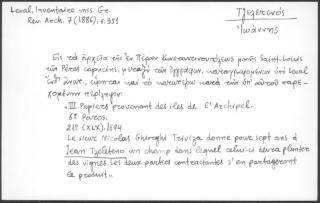 Laval, Inventaires mss Gr.
Rev. Arch. 7 (1886), σ. 351
Τζελετενός
Ἰωάννης
Εἰς τὰ ἀρχεῖα τῆς ἐν Πέραν Κωνσταντινουπόλεως μονῆς Saint-Louis
τῶν Pères capucins, μεταξὺ τῶν ἐγγράφων, καταγραφομένων ὑπὸ Laval
ὑπ' ὄψιν, εὑρίσκεται καὶ τὸ κατωτέρω κατὰ τὴν ὑπ' αὐτοῦ παρε-
χομένην περίληψιν:
«III. Papiers provenant des iles de l'Archipel.
6º Paros.
217 (XLX). 1694
Le sieur Nicolas Ghiraghi Treviza donne pour sept ans à
Jean Tzeleteno un champ dans lequel celui-ci devra planter
des vignes. Les deux parties contractantes s'en partageront
le produit».